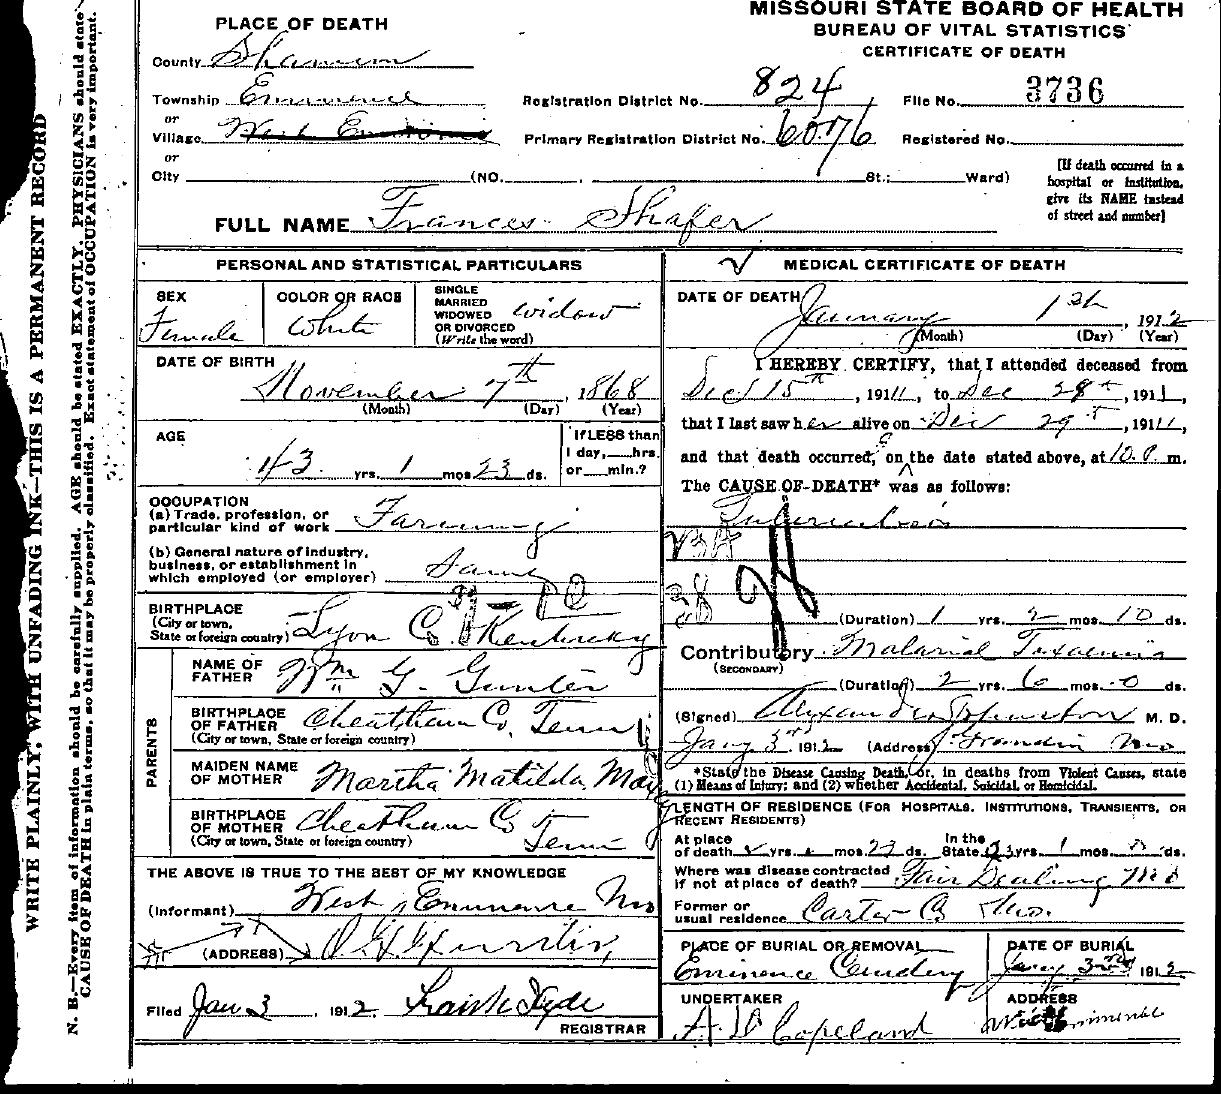 MISSOURI STATE BOARD OF HEALTH
BUREAU OF VITAL STATISTICS
CERTIFICATE OF DEATH
PLACE OF DEATH
County Shannon
Township Eminence Registration District No. 824 File No. 3736
or
Village West Eminence Primary Registration District No. 6076 Registered No.
or
City (NO. St.; Ward)
[If death occurred in a
hospital or institution,
give its NAME instead
of street and number]
FULL NAME Frances Shafer
PERSONAL AND STATISTICAL PARTICULARS
SEX
Female
COLOR OR RACE
White
SINGLE
MARRIED
WIDOWED
OR DIVORCED
(Write the word)
Widow
DATE OF BIRTH
November 7th, 1868
(Month) (Day) (Year)
AGE
43 yrs. 1 mos. 23 ds.
If LESS than
1 day, hrs.
or min.?
OCCUPATION
(a) Trade, profession, or
particular kind of work Farming
(b) General nature of industry,
business, or establishment in
which employed (or employer) Same
BIRTHPLACE
(City or town,
State or foreign country) Lyon Co. Kentucky
PARENTS
NAME OF
FATHER Wm G. Gunter
BIRTHPLACE
OF FATHER
(City or town, State or foreign country) Cheatham Co, Tenn
MAIDEN NAME
OF MOTHER Martha Matilda May
BIRTHPLACE
OF MOTHER
(City or town, State or foreign country) Cheatham Co Tenn
THE ABOVE IS TRUE TO THE BEST OF MY KNOWLEDGE
(Informant) West Eminence Mo
(ADDRESS)
Filed Jan 3 1912 Frank Hyde
REGISTRAR
MEDICAL CERTIFICATE OF DEATH
DATE OF DEATH
January 1st, 1912
(Month) (Day) (Year)
I HEREBY CERTIFY, that I attended deceased from
Dec 15th, 1911, to Dec 28th, 1911,
that I last saw her alive on Dec 29th, 1911,
and that death occurred, on the date stated above, at 10 P. m.
The CAUSE OF DEATH* was as follows:
Tuberculosis
(Duration) 1 yrs. 2 mos. 10 ds.
Contributory Malarial Toxaemia
(SECONDARY)
(Duration) 2 yrs. 6 mos. 0 ds.
(Signed) M. D.
Jany 3rd. 1912 (Address) Grandin Mo
*State the Disease Causing Death, or, in deaths from Violent Causes, state
(1) Means of Injury; and (2) whether Accidental, Suicidal, or Homicidal.
LENGTH OF RESIDENCE (FOR HOSPITALS, INSTITUTIONS, TRANSIENTS, OR
RECENT RESIDENTS)
At place
of death yrs. mos. 23 ds. In the
State 23 yrs. 1 mos. ds.
Where was disease contracted
if not at place of death? Fair Dealing Mo
Former or
usual residence Carter Co Mo.
PLACE OF BURIAL OR REMOVAL
Eminence Cemetery
DATE OF BURIAL
Jany 3rd 1912
UNDERTAKER
H D Copeland
ADDRESS
West Eminence
WRITE PLAINLY, WITH UNFADING INK—THIS IS A PERMANENT RECORD
N. B.—Every item of information should be carefully supplied. AGE should be stated EXACTLY. PHYSICIANS should state
CAUSE OF DEATH in plain terms, so that it may be properly classified. Exact statement of OCCUPATION is very important.